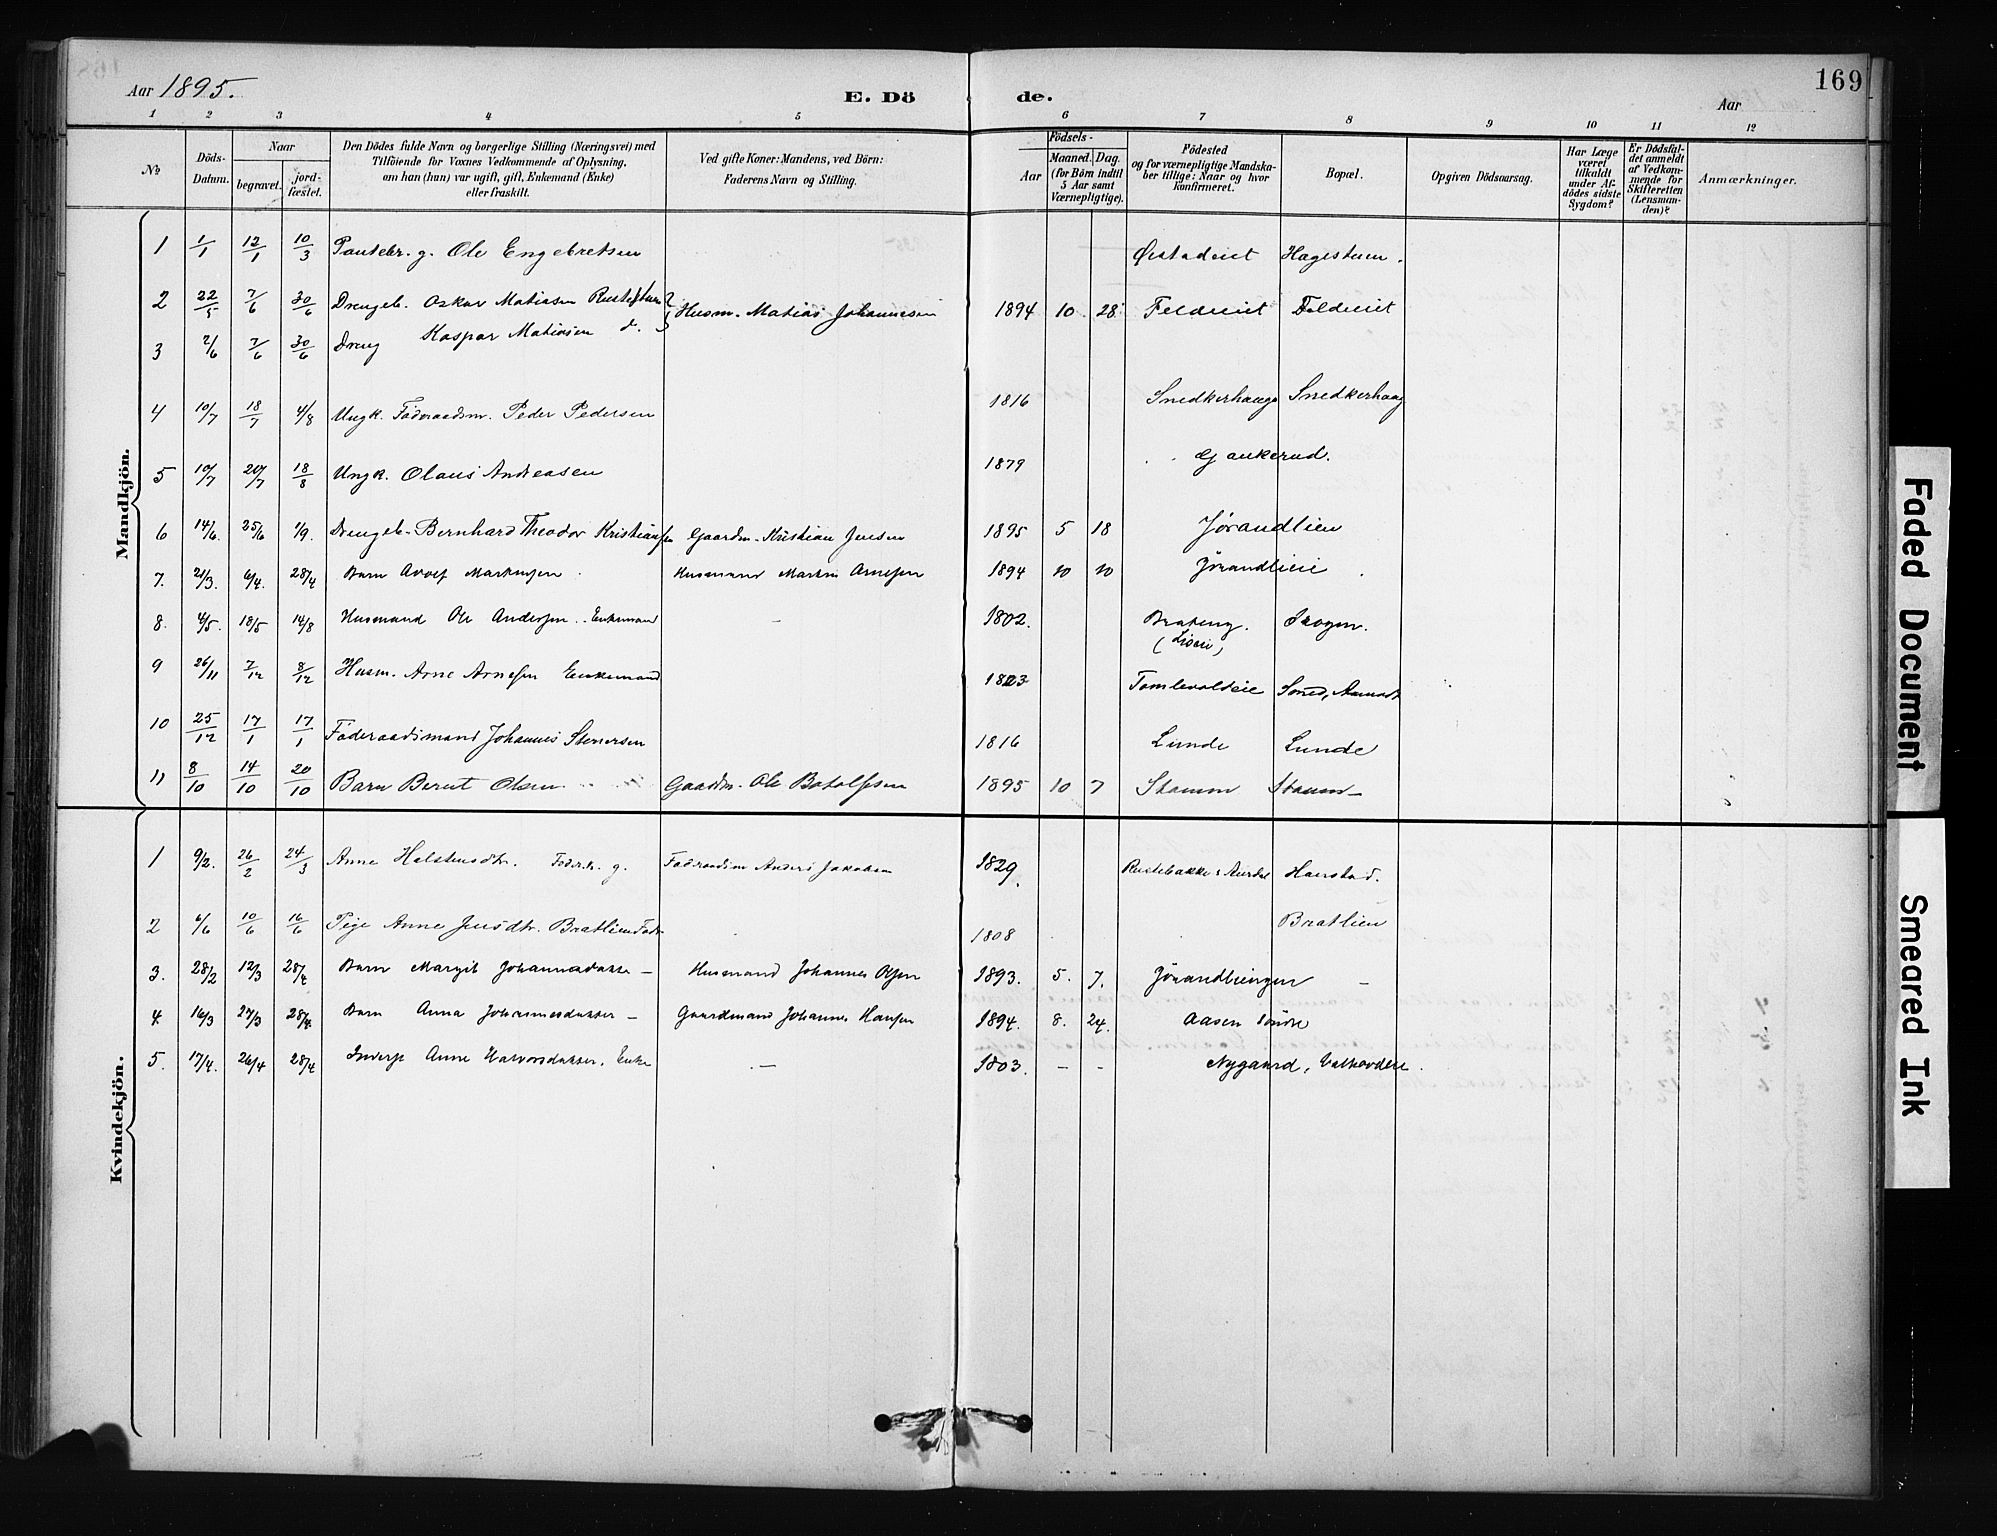 Aar 1895.
E. Dö de.
Aar
169
1 2 3 4 5 6 7 8 9 10 11 12
No
Döds-Datum.
Naar
begravet.
jord-fæstet.
Den Dödes fulde Navn og borgerlige Stilling (Næringsvei) med
Tilföiende for Voxnes Vedkommende af Oplysning,
om han (hun) var ugift, gift, Enkemand (Enke)
eller fraskilt.
Ved gifte Koner: Mandens, ved Börn:
Faderens Navn og Stilling.
Födsels-
Aar
Maaned. Dag.
(for Börn indtil
5 Aar samt
Værnepligtige).
Födested
og for værnepligtige Mandska-
ber tillige: Naar og hvor
konfirmeret.
Bopæl.
Opgiven Dödsaarsag.
Har Læge
været
tilkaldt
under Af-
dödes sidste
Sygdom?
Er Dödsfal-
det anmeldt
af Vedkom-
mende for
Skifteretten
(Lensman-
den)?
Anmærkninger.
Mandkjön.
1 1/1 12/1 10/3 g. Ole Engebretsen
2 22/5 7/6 30/6 Drengeb. Oskar Matiasen Husm. Matias Johannesen 1894 10 28
3 2/6 7/6 30/6 Dreng Kaspar Matiasen d.
4 10/7 18/7 4/8 Ungk. Föderaadsm. Peder Pedersen 1816 Snedkerhaug
5 10/7 20/7 18/8 Ungk. Olaus Andreasen 1879
6 14/6. 25/6 1/9. Drengeb. Bernhard Theodor Kristiansen Gaardm. Kristian Jensen 1895 5 18 Jørandlien
7. 21/3. 6/4. 28/4 Barn Adolf Husmand Arnesen 1894 10 10
8. 4/5. 18/5 14/8 Husmand Ole Andersen. Enkemand - 1802. Skogen.
9 26/11 7/12 8/12 Husm. Arne Arnesen Enkemand Tomlevoldeie
10 25/12 17/1 17/1 Föderaadsmand Johannes Stenersen 1816 Lunde Lunde
11 8/10 14/10 20/10 Barn Berut Olsen Gaardm. Ole Botolfsen 1895 10 7
Kvindekjön.
1 9/2. 26/2 24/3 Anne Halstensdtr. g. Föderaadsm Anders Jakobsen 1829.
2 6/6 10/6 16/6 Pige Anne Jensdtr. Bratlien 1808 Bratlien
3. 28/2 12/3 28/4 Barn Margit Johannesdatter - Husmand Johannes Olsen 1893. 5. 7.
4. 16/3 27/3 28/4 Barn Anna Johannesdatter - Gaardmand Johannes Hansen 1894. 8. 24. Aasen
5. 17/4. 26/4 28/4 Inderst Anne Halvorsdatter, Enke - 1803. - - Nygaard,
Faded Document
Smeared Ink